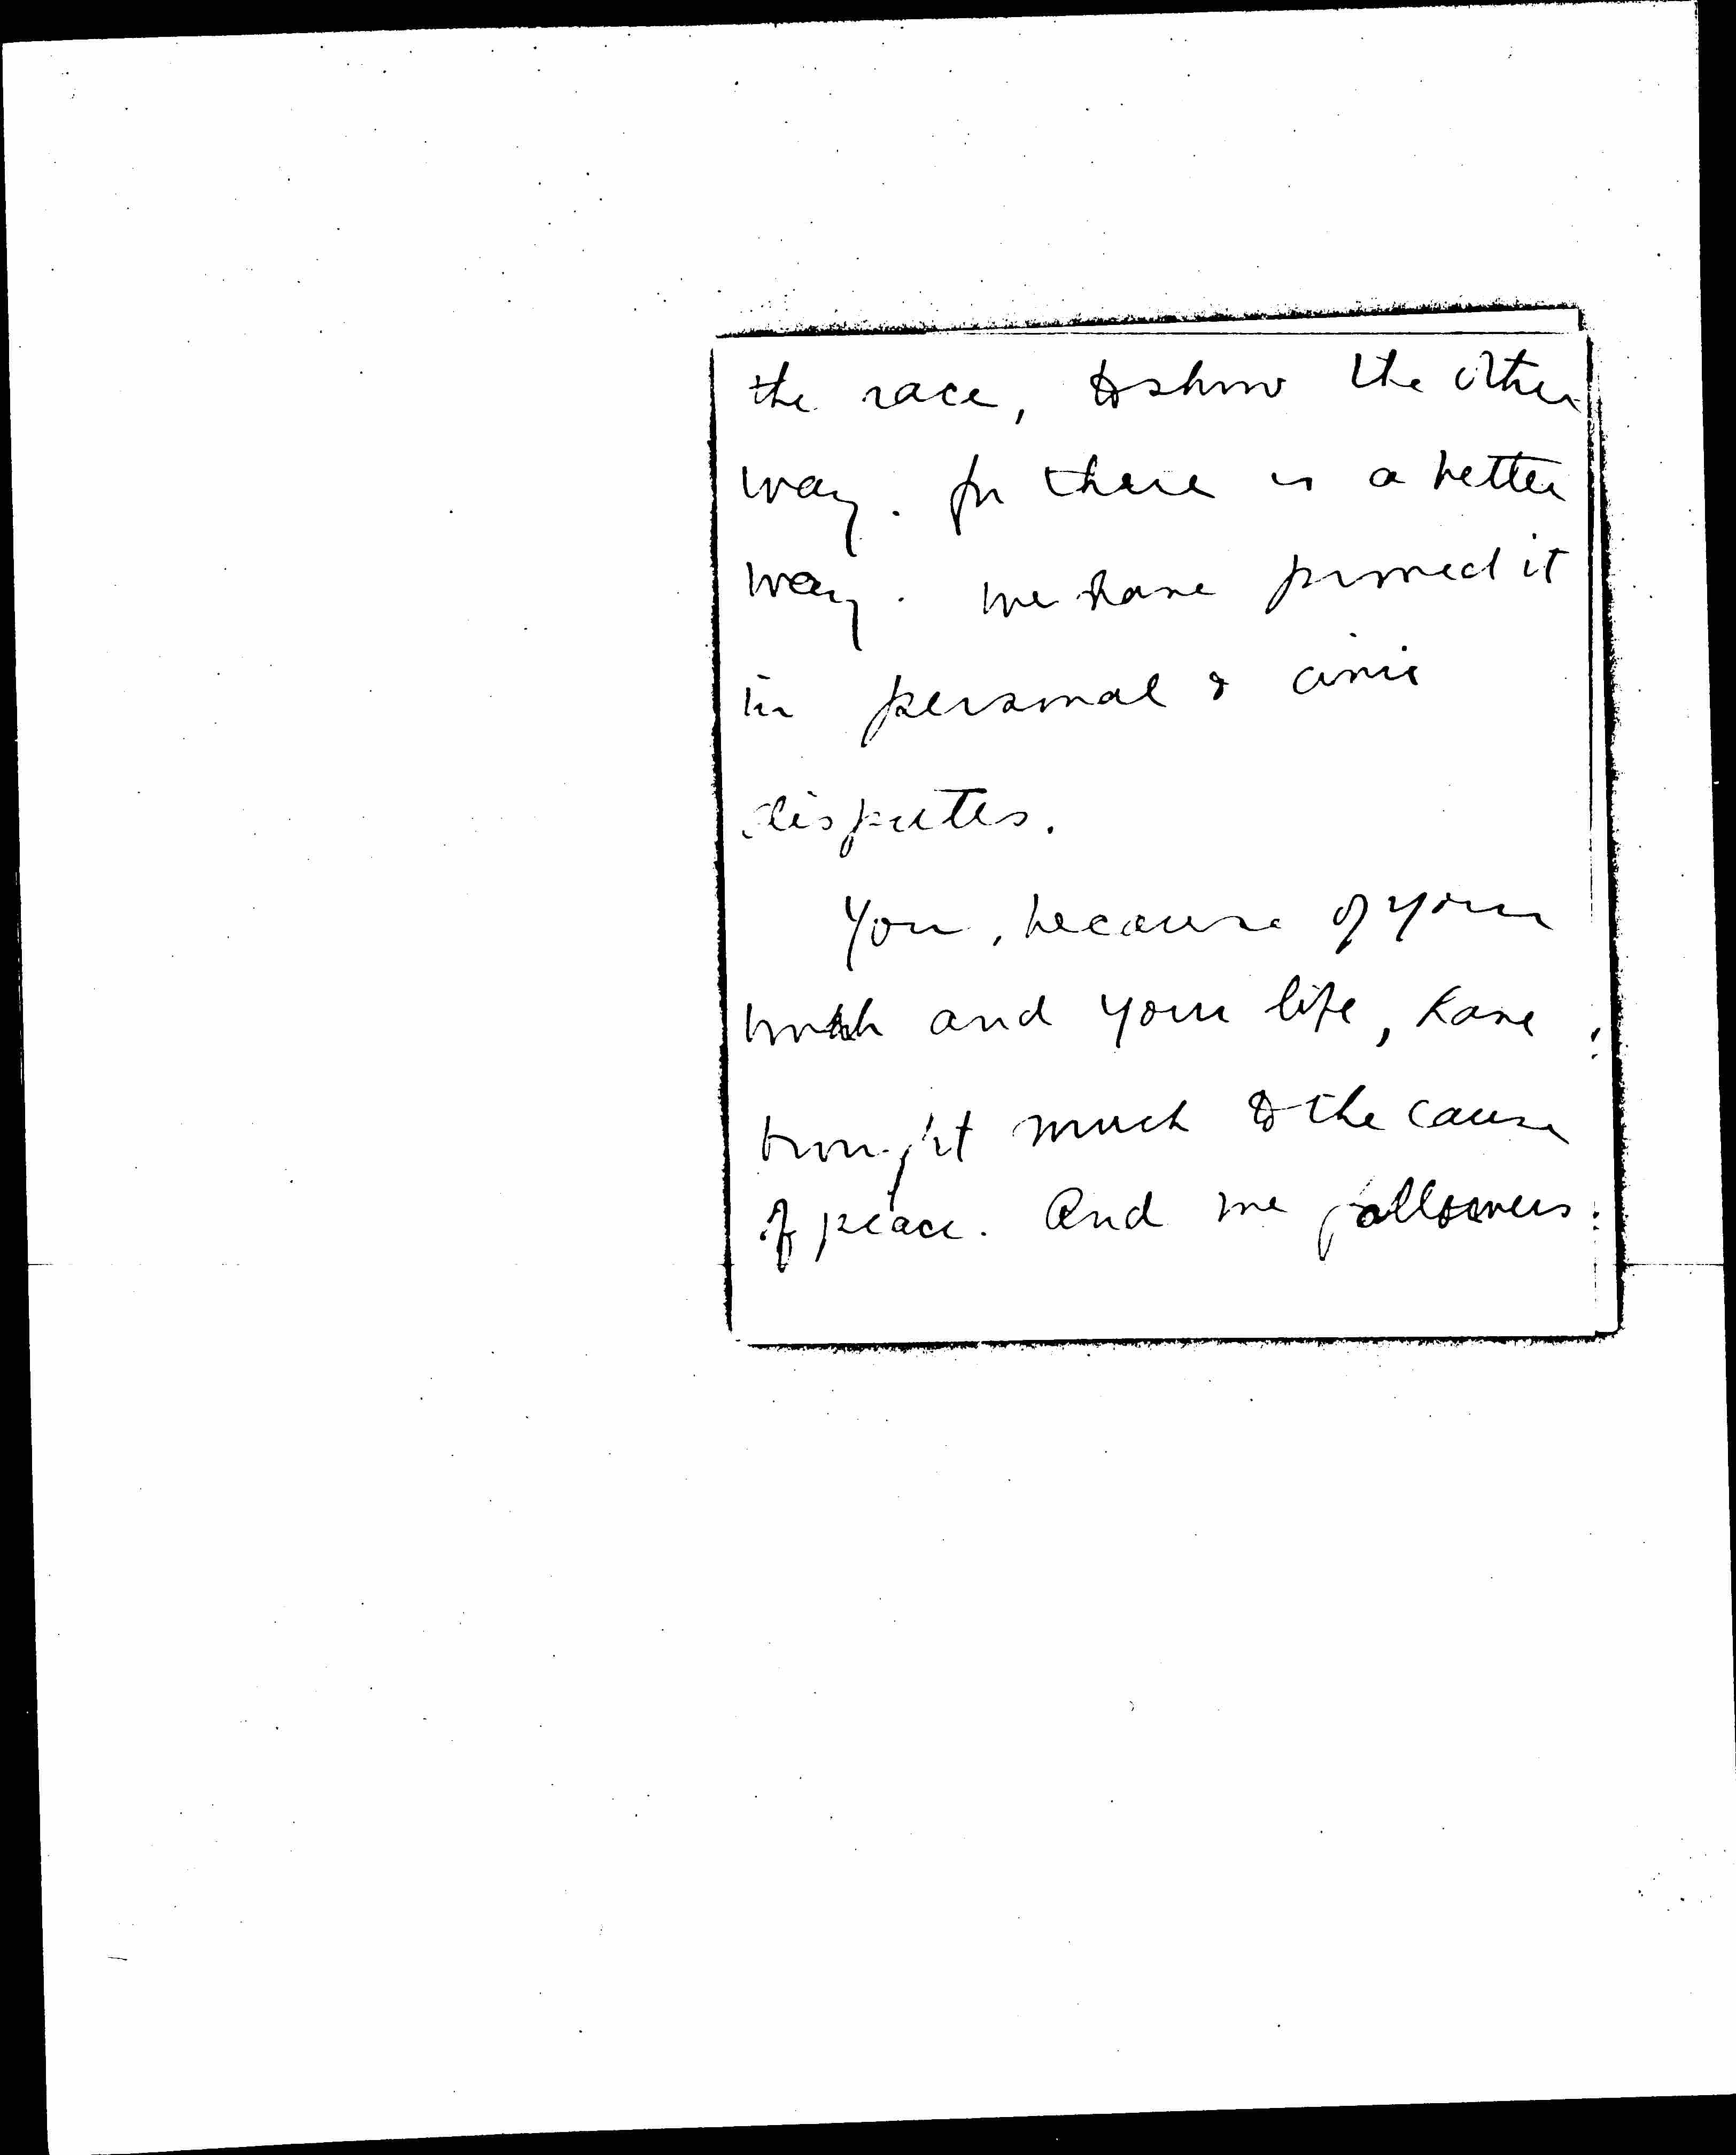 the race, to show the other
way. for there is a better
way. we have proved it
in personal & civic
disputes.
You, because of your
work and your life, have
brought much to the cause
of peace. And we followers